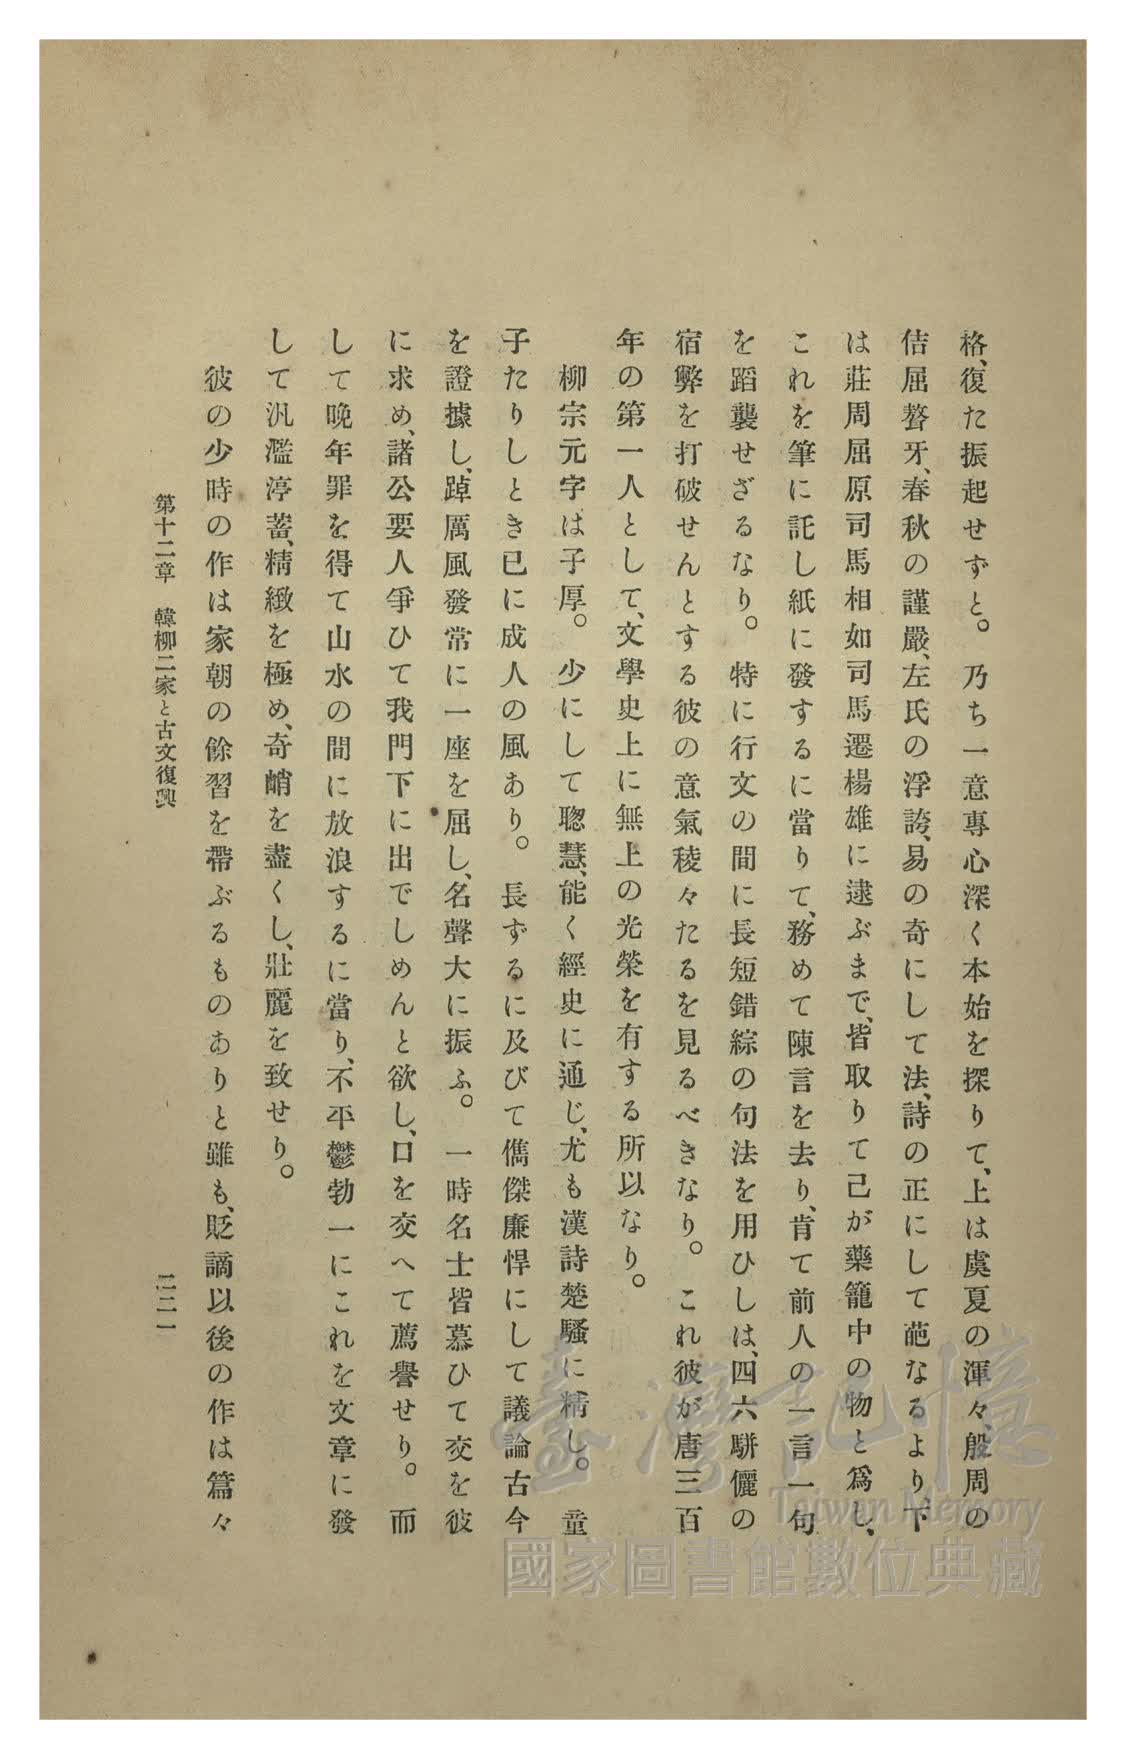 格、復た振起せずと。乃ち一意專心深く本始を探りて、上は虞夏の渾々、殷周の
佶屈聱牙、春秋の謹嚴、左氏の浮誇、易の奇にして法、詩の正にして葩なるより、下
は莊周屈原司馬相如司馬遷楊雄に逮ぶまで、皆取りて己が藥籠中の物と爲し、
これを筆に託し紙に發するに當りて、務めて陳言を去り、肯て前人の一言一句
を蹈襲せざるなり。特に行文の間に長短錯綜の句法を用ひしは、四六駢儷の
宿弊を打破せんとする彼の意氣稜々たるを見るべきなり。これ彼が唐三百
年の第一人として、文學史上に無上の光榮を有する所以なり。
柳宗元字は子厚。少にして聰慧、能く經史に通じ、尤も漢詩楚騷に精し。童
子たりしとき已に成人の風あり。長ずるに及びて儁傑廉悍にして議論古今
を證據し、踔厲風發常に一座を屈し、名聲大に振ふ。一時名士皆慕ひて交を彼
に求め、諸公要人爭ひて我門下に出でしめんと欲し、口を交へて薦譽せり。而
して晩年罪を得て山水の間に放浪するに當り、不平鬱勃一にこれを文章に發
して汎濫渟蓄、精緻を極め、奇峭を盡くし、壯麗を致せり。
彼の少時の作は家朝の餘習を帶ぶるものありと雖も、貶謫以後の作は篇々
第十二章　韓柳二家と古文復興
二二一
臺灣記憶
Taiwan Memory
國家圖書館數位典藏